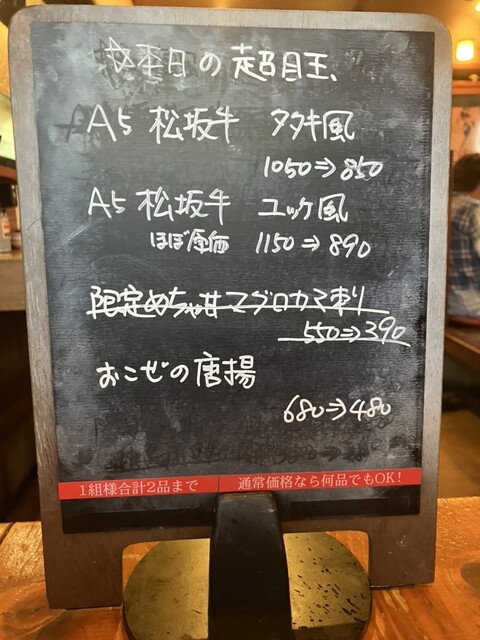 ☆本日の超目玉、
A5 松坂牛 タタキ風
1050⇒850
A5 松坂牛 ユッケ風
ほぼ原価 1150⇒890
限定めちゃ丼マグロカマ刺り
550⇒390
おこぜの唐揚
680⇒480
1組様合計2品まで 通常価格なら何品でもOK!